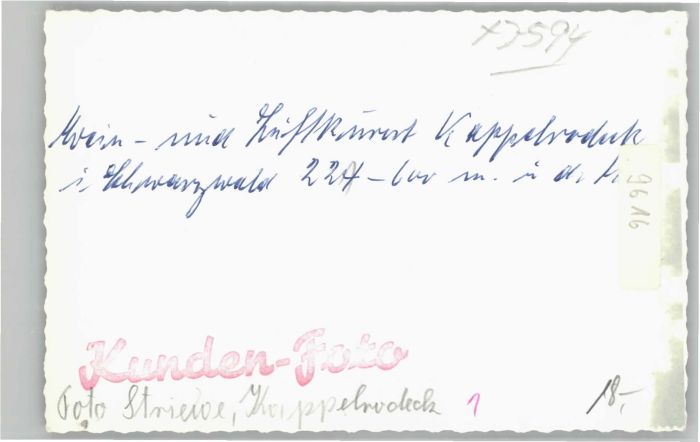 x7594
Wein- und Luftkurort Kappelrodeck
i. Schwarzwald 224-600 m. ü. d. M.
9616
Kunden-Foto
Foto Striewe, Kappelrodeck 1 18,-